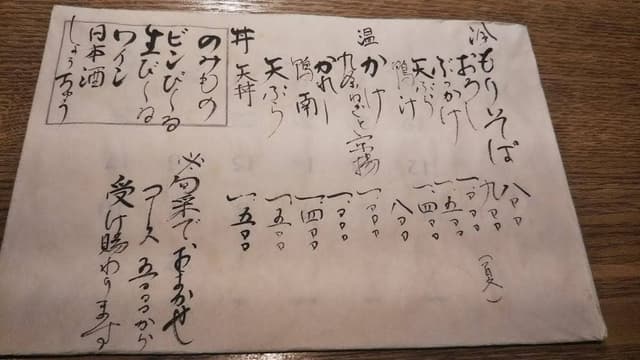 冷 もりそば 八〇〇
おろし 九〇〇 (夏)
ぶっかけ 一、〇〇〇
天ぷら 一、五〇〇
鴨汁 一、四〇〇
温 かけ 八〇〇
九条ねぎと 一、〇〇〇
かれー 一、〇〇〇
鴨南 一、四〇〇
天ぷら 一、五〇〇
丼 天丼 一、五〇〇
のみもの
ビンびーる
生びーる
ワイン
日本酒
しょうちゅう
旬菜で、おまかせ
コース 五〇〇〇から
受け賜わります